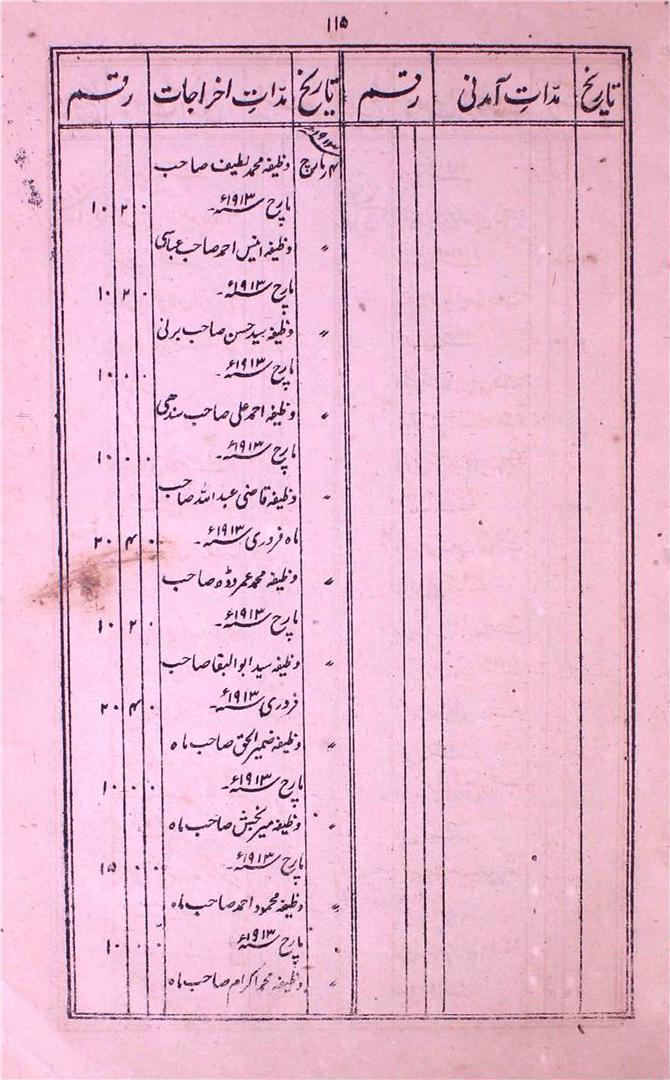 ۱۱۵
تاریخ مدّاتِ آمدنی رقم تاریخ مدّاتِ اخراجات رقم
۱۹۱۳ء
۴؍مارچ وظیفہ محمد لطیف صاحب
مارچ ۱۹۱۳ء۔ ۰ ۲ ۱۰
〃 وظیفہ انیس احمد صاحب عباسی
مارچ ۱۹۱۳ء۔ ۰ ۲ ۱۰
〃 وظیفہ سید حسن صاحب برنی
مارچ ۱۹۱۳ء۔ ۰ ۰ ۱۰
〃 وظیفہ احمد علی صاحب سندھی
مارچ ۱۹۱۳ء۔ ۰ ۰ ۱۰
〃 وظیفہ قاضی عبداللہ صاحب
ماہ فروری ۱۹۱۳ء۔ ۰ ۴ ۲۰
〃 وظیفہ محمد عمر ودود صاحب
مارچ ۱۹۱۳ء۔ ۰ ۲ ۱۰
〃 وظیفہ سید ابوالبقا صاحب
فروری ۱۹۱۳ء۔ ۰ ۴ ۲۰
〃 وظیفہ ضمیرالحق صاحب ماہ
مارچ ۱۹۱۳ء۔ ۰ ۰ ۱۰
〃 وظیفہ میر بخش صاحب ماہ
مارچ ۱۹۱۳ء۔ ۰ ۰ ۱۵
〃 وظیفہ محمود احمد صاحب ماہ
مارچ ۱۹۱۳ء ۰ ۰ ۱۰
〃 وظیفہ محمد اکرام صاحب ماہ